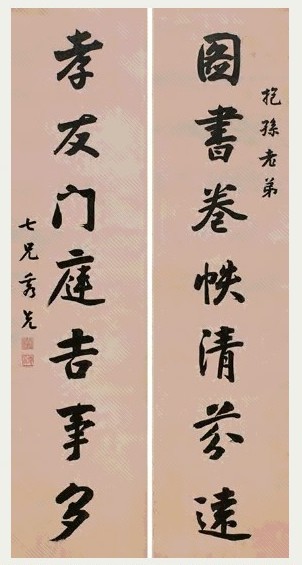 抱孫老弟
圖書卷帙清芬遠
孝友门庭吉事多
七兄